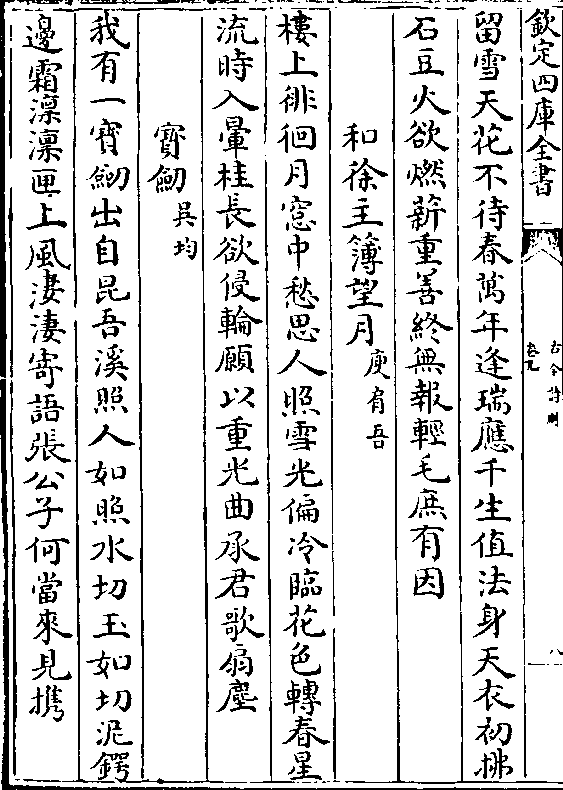 欽定四庫全書
古今詩刪
卷九
八
留雪天花不待春萬年逢瑞應千生值法身天衣初拂
石豆火欲燃薪重善終無報輕毛庶有因
和徐主簿望月庾肩吾
樓上徘徊月窓中愁思人照雪光偏冷臨花色轉春星
流時入暈桂長欲侵輪願以重光曲承君歌扇塵
寳劒吳均
我有一寳劒出自昆吾溪照人如照水切玉如切泥鍔
邊霜凛凛匣上風淒淒寄語張公子何當來見攜